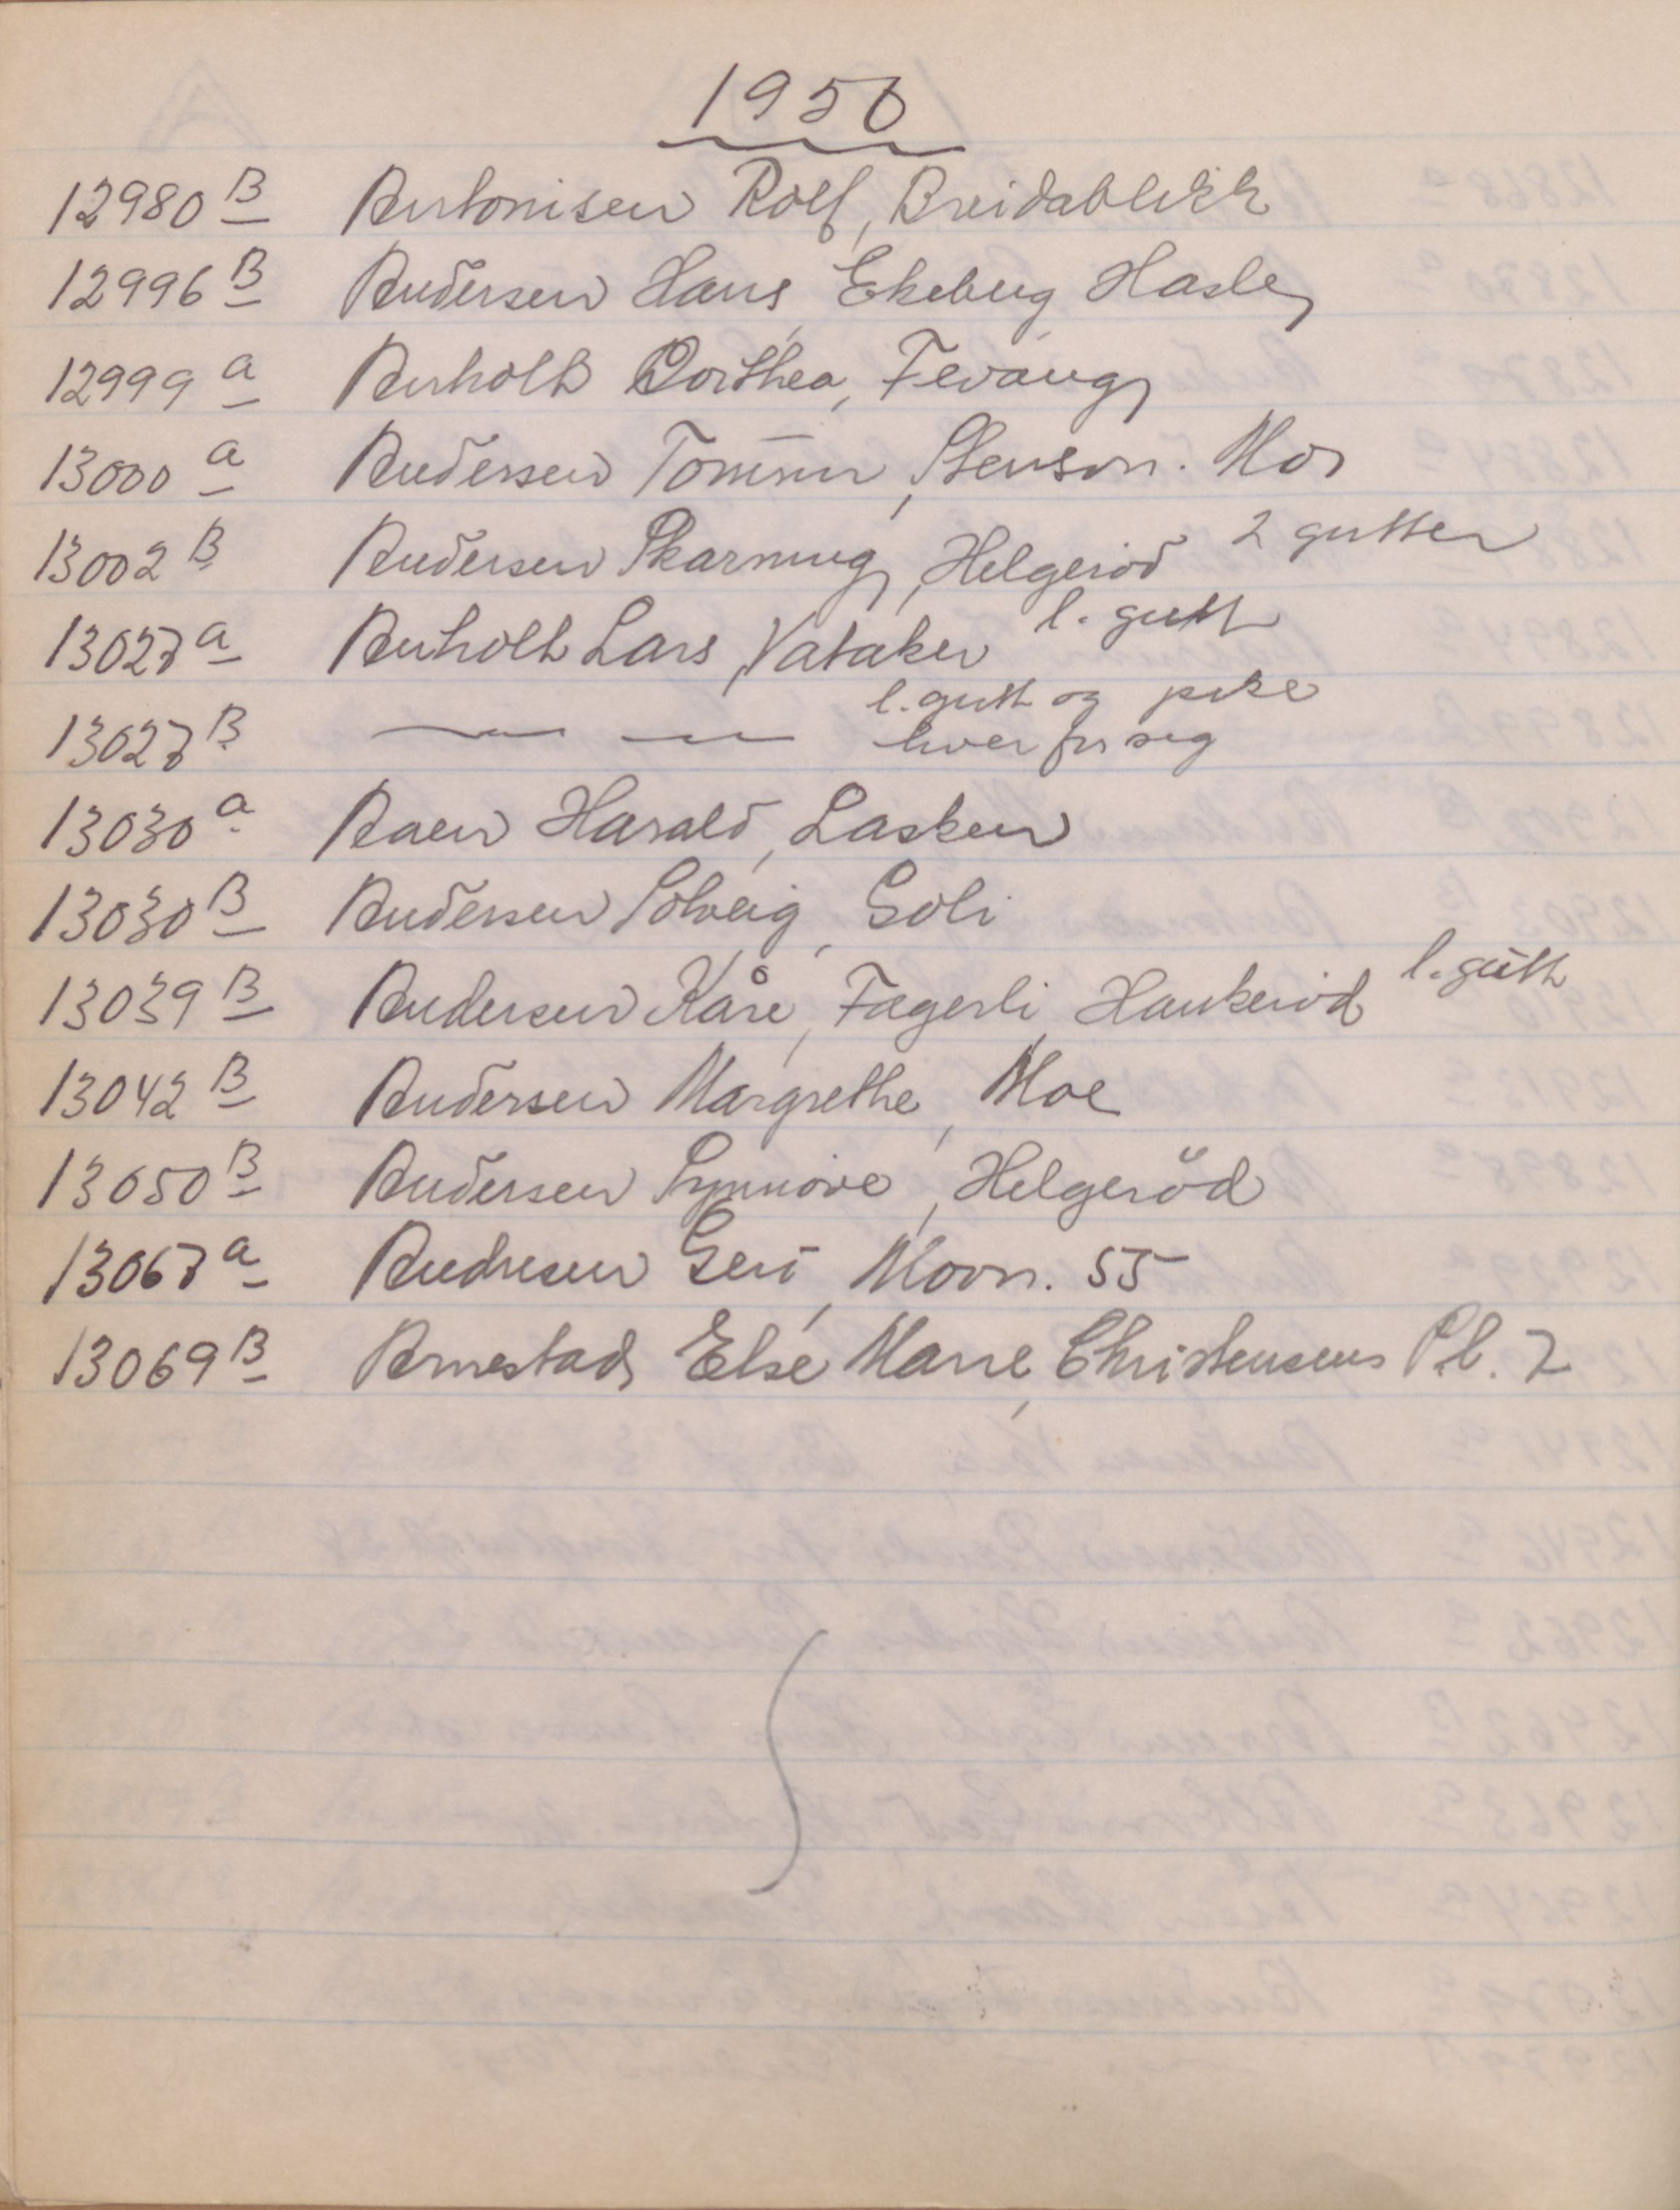 1956
12980 B Antonisen Rolf, Breidablikk
12996 B Andersen Hans, Ekeberg Hasle
12999 a Anholt Dorthea, Fevang
13000 a Andersen Tommr, Stensvn. Mor
13002 B Andersen Skarning, Helgeröd 2 gutter
13027 a Anholt Lars, Vataker l. gutt
l. gutt og pike
13027 B — — hver for seg
13030 a Aaen Harald, Lasken
13030 B Andersen Solveig, Soli
13039 B Andersen Kåre, Fagerli, Haukeröd l. gutt
13042 B Andersen Margrethe, Moe
13050 B Andersen Synnöve, Helgeröd
13067 a Andresen Gerd, Movn. 55
13069 B Arnestad, Else Marie, Christensens Pl. 2